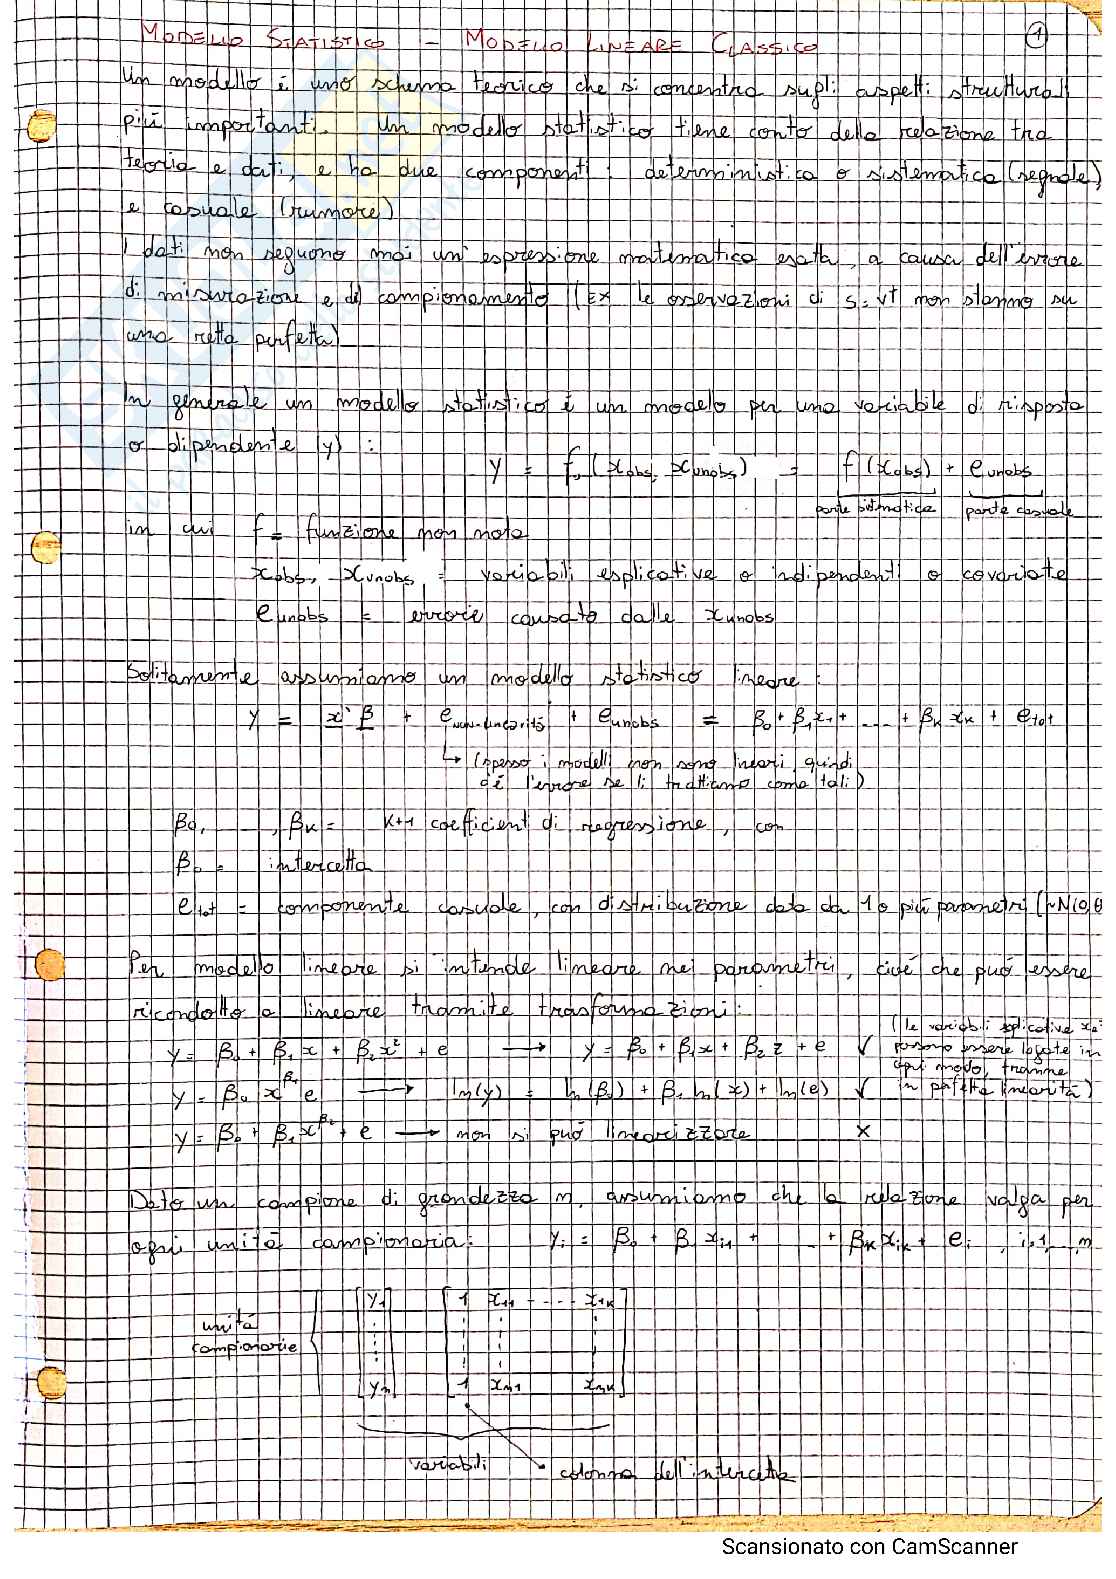 MODELLO STATISTICO - MODELLO LINEARE CLASSICO
1
Un modello è uno schema teorico che si concentra sugli aspetti strutturali
più importanti. Un modello statistico tiene conto della relazione tra
teoria e dati, e ha due componenti: deterministica o sistematica (segnale)
e casuale (rumore)
I dati non seguono mai un'espressione matematica esatta, a causa dell'errore
di misurazione e di campionamento (Ex le osservazioni di s=vt non stanno su
una retta perfetta)
In generale un modello statistico è un modello per una variabile di risposta
o dipendente (y):
y = f (xobs, xunobs) = f(xobs) + eunobs
parte sistematica parte casuale
in cui f = funzione non nota
xobs, xunobs = variabili esplicative o indipendenti o covariate
eunobs = errore causato dalle xunobs
Solitamente assumiamo un modello statistico lineare:
y = x'β + enon-linearità + eunobs = β0 + β1x1 + .... + βkxk + etot
↳ (spesso i modelli non sono lineari, quindi
c'è l'errore se li trattiamo come tali)
β0, , βk = k+1 coefficienti di regressione, con
β0 = intercetta
etot = componente casuale, con distribuzione data da 1 o più parametri (~N(0,θ
Per modello lineare si intende lineare nei parametri, cioè che può essere
ricondotto a lineare tramite trasformazioni:
y = β0 + β1x + β2x² + e → y = β0 + β1x + β2z + e ✓
(le variabili esplicative
possono essere legate in
ogni modo, tranne
in perfetta linearità)
y = β0 x^β1 e → ln(y) = ln(β0) + β1 ln(x) + ln(e) ✓
y = β0 + β1x^β2 + e → non si può linearizzare ×
Dato un campione di grandezza n, assumiamo che la relazione valga per
ogni unità campionaria: yi = β0 + β1xi1 + ... + βkxik + ei, i=1,...,n
y1 1 x11 - - - - x1k
unità
campionarie
yn 1 xn1 xnk
variabili
colonna dell'intercetta
Scansionato con CamScanner